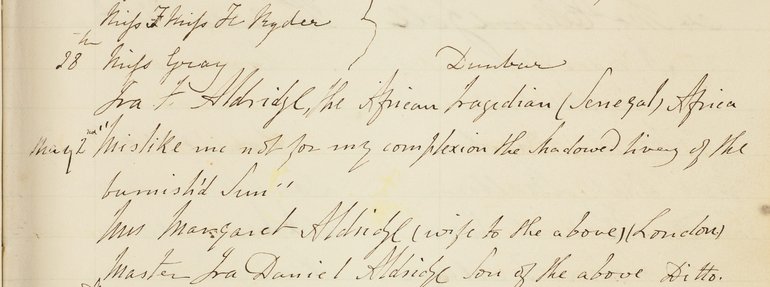 Miss F Miss H Ryder
28th Miss Gray Dunbar
Ira F. Aldridge, the African Tragedian (Senegal) Africa
May 2nd "Mislike me not for my complexion the shadowed livery of the
burnish'd Sun"
Mrs Margaret Aldridge (wife to the above) (London)
Master Ira Daniel Aldridge Son of the above Ditto.